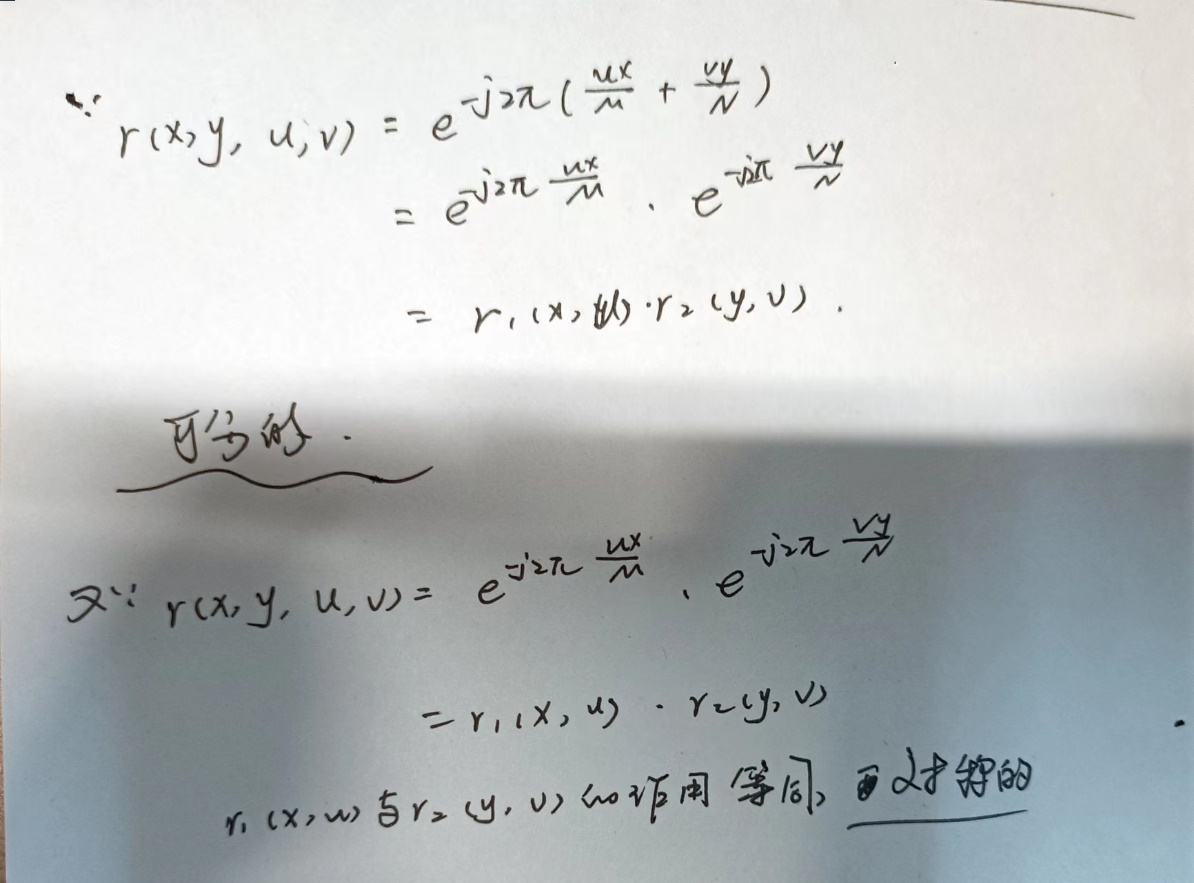 ∵ r(x, y, u, v) = e^{-j2π(\frac{ux}{M} + \frac{vy}{N})}
= e^{-j2π \frac{ux}{M}} · e^{-j2π \frac{vy}{N}}
= r₁(x, u) · r₂(y, v).
可分的.
又∵ r(x, y, u, v) = e^{-j2π \frac{ux}{M}} · e^{-j2π \frac{vy}{N}}
= r₁(x, u) · r₂(y, v)
r₁(x, u) 与 r₂(y, v) 的作用等同, 对称的